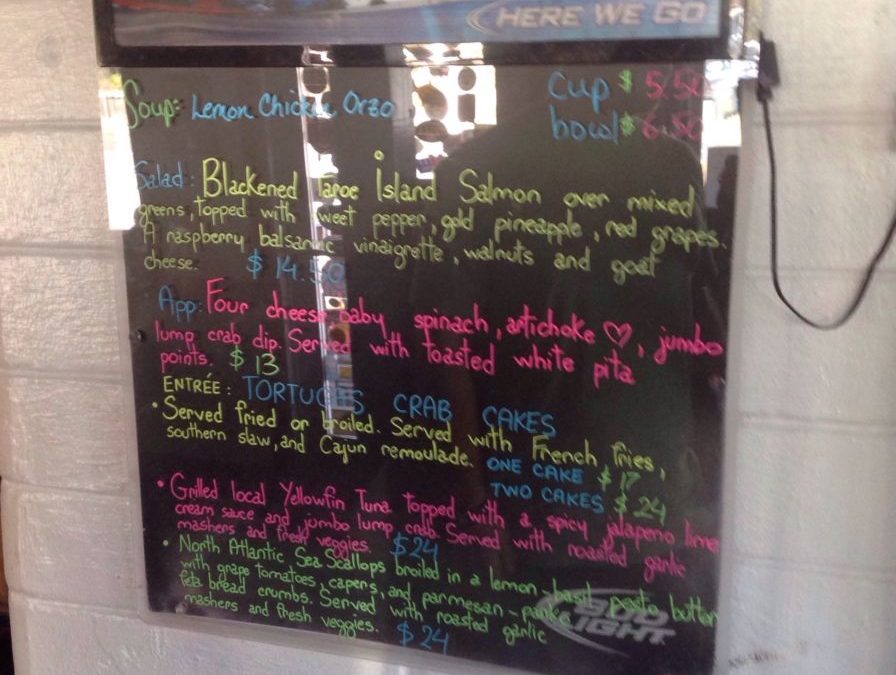 HERE WE GO
Soup: Lemon Chicken Orzo
Cup $ 5.50
bowl $ 6.50
Salad: Blackened Faroe Island Salmon over mixed
greens, topped with sweet pepper, gold pineapple, red grapes.
A raspberry balsamic vinaigrette, walnuts and goat
cheese. $ 14.50
App: Four cheese baby spinach, artichoke ♡, jumbo
lump crab dip. Served with toasted white pita
points. $ 13
ENTRÉE: TORTUGAS CRAB CAKES
• Served fried or broiled. Served with French fries,
southern slaw, and Cajun remoulade. ONE CAKE $ 17
TWO CAKES $ 24
• Grilled local Yellowfin Tuna topped with a spicy jalapeno lime
cream sauce and jumbo lump crab. Served with roasted garlic
mashers and fresh veggies. $24
• North Atlantic Sea Scallops broiled in a lemon-basil pesto butter
with grape tomatoes, capers, and parmesan-panko
feta bread crumbs. Served with roasted garlic
mashers and fresh veggies. $24
BUD
LIGHT